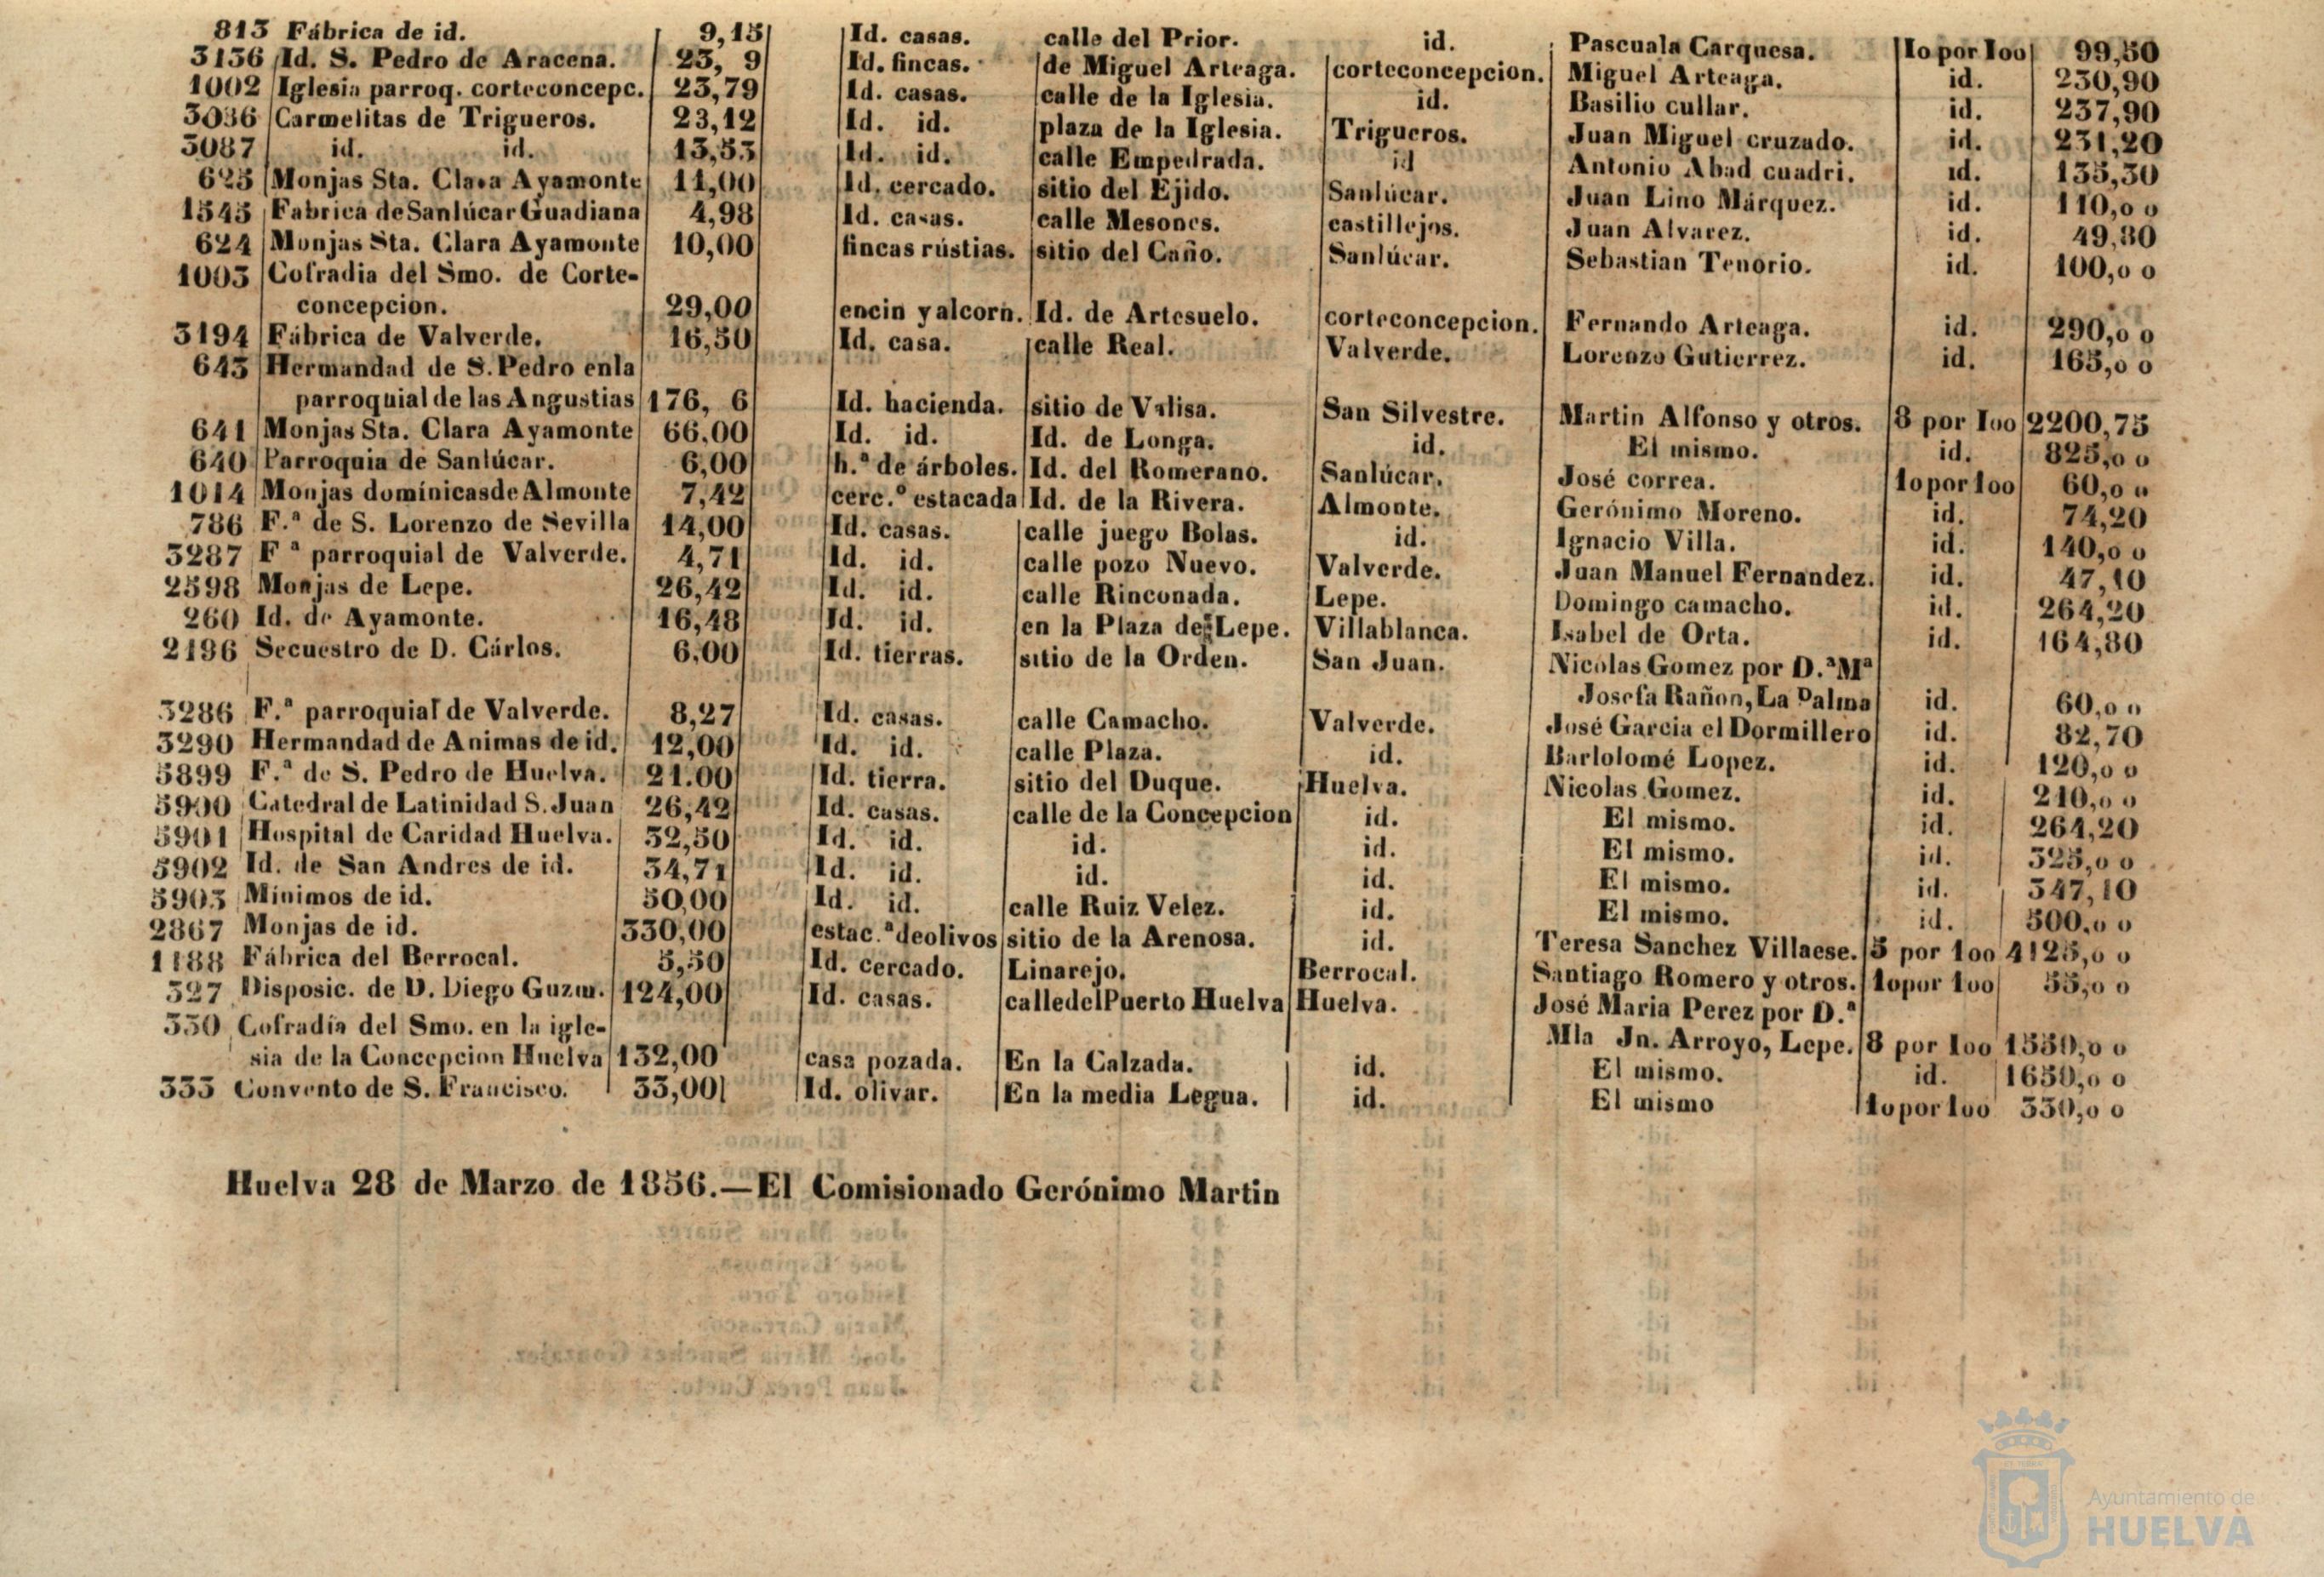 813 Fábrica de id. 9,15 Id. casas. calle del Prior. id. Pascuala Carquesa. 1o por 1oo 99,50
3136 Id. S. Pedro de Aracena. 23, 9 Id. fincas. de Miguel Arteaga. corteconcepcion. Miguel Arteaga. id. 230,90
1002 Iglesia parroq. corteconcepc. 23,79 Id. casas. calle de la Iglesia. id. Basilio cullar. id. 237,90
3036 Carmelitas de Trigueros. 23,12 Id. id. plaza de la Iglesia. Trigueros. Juan Miguel cruzado. id. 231,20
3087 id. id. 13,53 Id. id. calle Empedrada. id Antonio Abad cuadri. id. 135,30
625 Monjas Sta. Clara Ayamonte 11,00 Id. cercado. sitio del Ejido. Sanlúcar. Juan Lino Márquez. id. 110,o o
1545 Fabrica de Sanlúcar Guadiana 4,98 Id. casas. calle Mesones. castillejos. Juan Alvarez. id. 49,80
624 Monjas Sta. Clara Ayamonte 10,00 fincas rústias. sitio del Caño. Sanlúcar. Sebastian Tenorio. id. 100,o o
1003 Cofradia del Smo. de Corte-
concepcion. 29,00 encin y alcorn. Id. de Artesuelo. corteconcepcion. Fernando Arteaga. id. 290,o o
3194 Fábrica de Valverde. 16,50 Id. casa. calle Real. Valverde. Lorenzo Gutierrez. id. 165,o o
643 Hermandad de S. Pedro en la
parroquial de las Angustias 176, 6 Id. hacienda. sitio de Valisa. San Silvestre. Martin Alfonso y otros. 8 por 1oo 2200,75
641 Monjas Sta. Clara Ayamonte 66.00 Id. id. Id. de Longa. id. El mismo. id. 825,o o
640 Parroquia de Sanlúcar. 6,00 h.ª de árboles. Id. del Romerano. Sanlúcar. José correa. 1o por 1oo 60,o o
1014 Monjas domínicas de Almonte 7,42 cerc.º estacada Id. de la Rivera. Almonte. Gerónimo Moreno. id. 74,20
786 F.ª de S. Lorenzo de Sevilla 14,00 Id. casas. calle juego Bolas. id. Ignacio Villa. id. 140,o o
3287 F ª parroquial de Valverde. 4,71 Id. id. calle pozo Nuevo. Valverde. Juan Manuel Fernandez. id. 47,10
2598 Monjas de Lepe. 26,42 Id. id. calle Rinconada. Lepe. Domingo camacho. id. 264,20
260 Id. de Ayamonte. 16,48 Id. id. en la Plaza de Lepe. Villablanca. Isabel de Orta. id. 164,80
2196 Secuestro de D. Cárlos. 6.00 Id. tierras. sitio de la Orden. San Juan. Nicolas Gomez por D.ª Mª
Josefa Rañon, La Palma id. 60,o o
3286 F.ª parroquial de Valverde. 8,27 Id. casas. calle Camacho. Valverde. José Garcia el Dormillero id. 82,70
3290 Hermandad de Animas de id. 12,00 Id. id. calle Plaza. id. Barlolomé Lopez. id. 120,o o
5899 F.ª de S. Pedro de Huelva. 21.00 Id. tierra. sitio del Duque. Huelva. Nicolas Gomez. id. 210,o o
5900 Catedral de Latinidad S. Juan 26,42 Id. casas. calle de la Concepcion id. El mismo. id. 264,20
5901 Hospital de Caridad Huelva. 32,50 Id. id. id. id. El mismo. id. 325,o o
5902 Id. de San Andres de id. 34,71 Id. id. id. id. El mismo. id. 347,10
5903 Mínimos de id. 50,00 Id. id. calle Ruiz Velez. id. El mismo. id. 500,o o
2867 Monjas de id. 330,00 estac.ª de olivos sitio de la Arenosa. id. Teresa Sanchez Villaese. 5 por 1oo 4125,o o
1188 Fábrica del Berrocal. 5,50 Id. cercado. Linarejo. Berrocal. Santiago Romero y otros. 1o por 1oo 55,o o
327 Disposic. de D. Diego Guzm. 124,00 Id. casas. calle del Puerto Huelva Huelva. José Maria Perez por D.ª
Mla Jn. Arroyo, Lepe. 8 por 1oo 1550,o o
330 Cofradía del Smo. en la igle-
sia de la Concepcion Huelva 132,00 casa pozada. En la Calzada. id. El mismo. id. 1650,o o
333 Convento de S. Francisco. 33,00 Id. olivar. En la media Legua. id. El mismo 1o por 1oo 330,o o
Huelva 28 de Marzo de 1856.—El Comisionado Gerónimo Martin
Ayuntamiento de
HUELVA